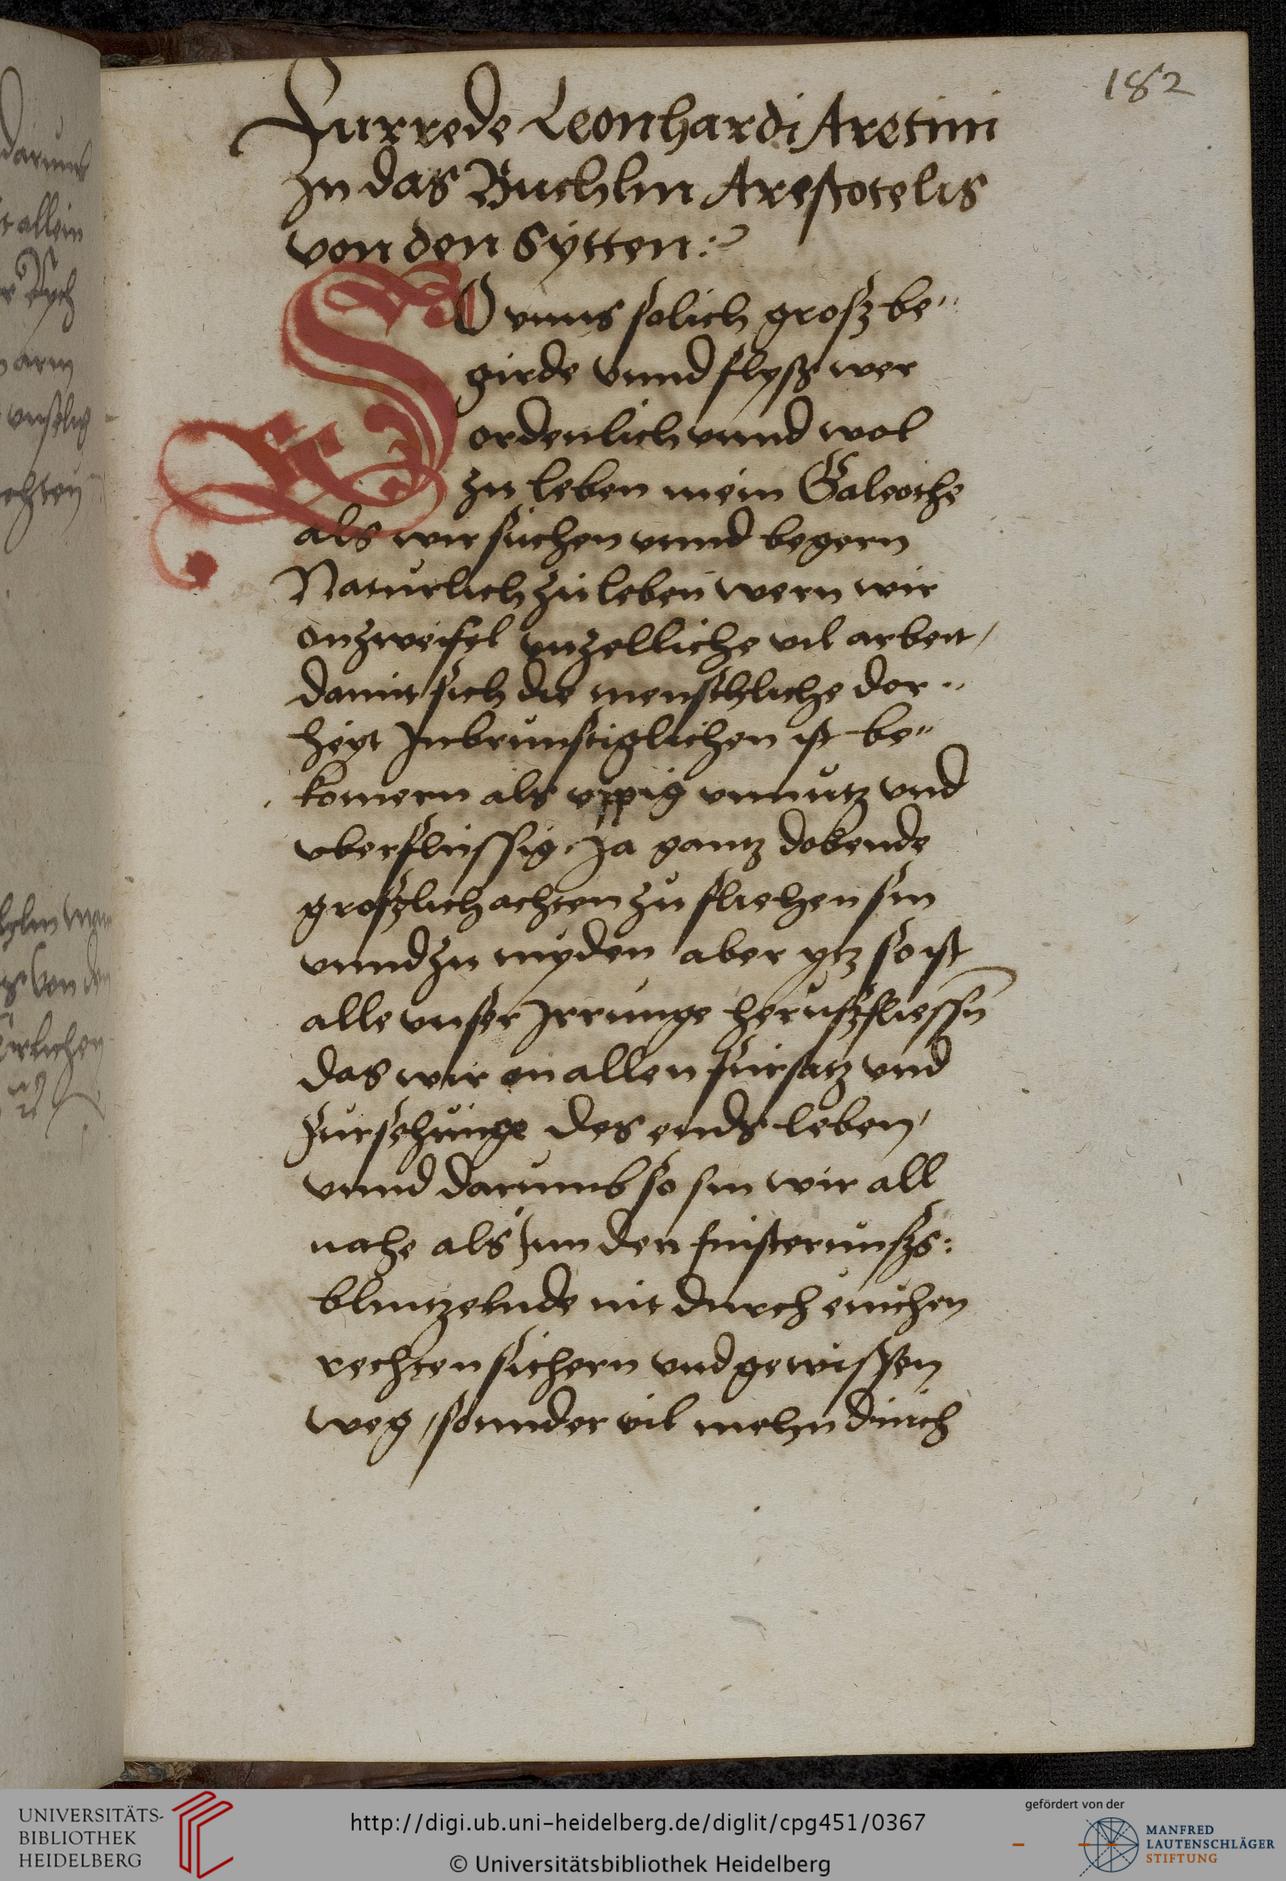 182
Furrede Leonhardi Aretini
In das Buchlin Arestotelis
von den Sytten:
SO vnns solich grosz be"
girde vnnd flysz wer
ordenlich vnnd wol
zu leben mein Galeothe
als wir suchen vnnd begern
Naturlich zu leben wern wir
onzweifel vnzelliche vil arbeit /
damit sich die menschliche dor"
heyt Inbrunstiglichen ist be"
komern als vppig vnnutz vnd
vberflussig Ja gantz dobende
groszlich achten zu fliehen sin
vnnd zu myden aber ytz so ist
alle vnser Irrunge heruszfliessn
das wir on allen fursatz vnd
fursehunge des ends leben /
vnnd darumb so sin wir all
nahe als Inn den finsternusz:
blintzelnde nit durch einchen
rechten sichern vnd gewissen
weg / sonnder vil mehn durch
darum
allein
arm
UNIVERSITÄTS-
BIBLIOTHEK
HEIDELBERG
http://digi.ub.uni-heidelberg.de/diglit/cpg451/0367
© Universitätsbibliothek Heidelberg
gefördert von der
MANFRED
LAUTENSCHLÄGER
STIFTUNG